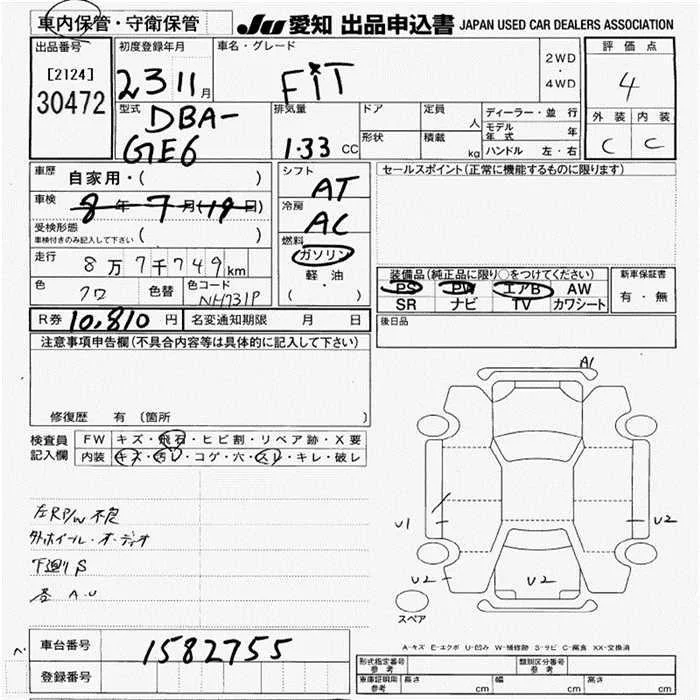 車内保管・守衛保管 Ju 愛知 出品申込書 JAPAN USED CAR DEALERS ASSOCIATION
出品番号 初度登録年月 車名・グレード 2WD ・ 4WD 評価点
[2124] 23 11月 FIT 4
30472
型式 DBA- 排気量 ドア 定員 人 ディーラー・並行 外装 内装
GE6 1.33 CC 形状 積載 kg モデル年式 年 C C
ハンドル 左・右
車歴 自家用・( ) シフト AT セールスポイント(正常に機能するものに限ります)
車検 8年7月(19日) 冷房 AC
受検形態 ( )
車検付きのみ記入して下さい
燃料 ガソリン
走行 8万7千749km 軽・油 装備品(純正品に限り○をつけてください) 新車保証書
色 クロ 色替 色コード NH731P ( ・ ) PS PW エアB AW 有・無
SR ナビ TV カワシート
R券 10,810円 名変通知期限 月 日 後日品
注意事項申告欄(不具合内容等は具体的に記入して下さい)
A1
修復歴 有 〔箇所 〕
検査員 FW キズ・飛石・ヒビ割・リペア跡・X要
記入欄 内装 キズ・汚レ・コゲ・穴・スレ・キレ・破レ
左RP/W不良
U1 U2
外ホイール・オーディオ
下廻りS
U2 U2
A.U
スペア
車台番号 1582755
A-キズ E-エクボ U-凹み W-補修跡 S-サビ C-腐食 XX-交換済
登録番号
形式指定番号 参考 類別区分番号 参考
車庫証明用 参考 長さ cm 幅 cm 高さ cm